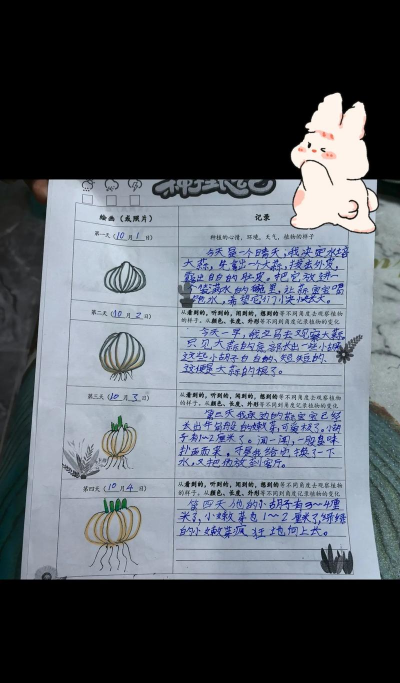 种植记
绘画（或照片）
记录
第一天（10月1日）
种植的心情，环境，天气，植物的样子
今天是一个晴天，我决定水培
大蒜，先拿出一个大蒜，
露出白白的肚皮。把它放进一
个装满水的碗里，让蒜宝宝喝
水，希望它们快快长大。
第二天（10月2日）
从看到的，听到的，闻到的，想到的等不同角度去观察植物
的样子，从颜色、长度、外形等不同角度记录植物的变化
今天一早，我立马去观察大蒜
只见大蒜的底部长出一些小胡子
这些小胡子白白的、短短的、
这便是大蒜的根了。
第三天（10月3日）
从看到的，听到的，闻到的，想到的等不同角度去观察植物
的样子，从颜色、长度、外形等不同角度记录植物的变化
第三天我亲爱的蒜宝宝已经
长出嫩芽，可爱极了。小胡
子有1~2厘米了。闻一闻，一股臭味
扑面而来。于是我给它换了一下
水，又把他放到客厅。
第四天（10月4日）
从看到的，听到的，闻到的，想到的等不同角度去观察植物
的样子，从颜色、长度、外形等不同角度记录植物的变化
第四天他的小胡子有3~4厘
米了，小嫩芽有1~2厘米了，娇娇
的小嫩芽疯狂地向上长。